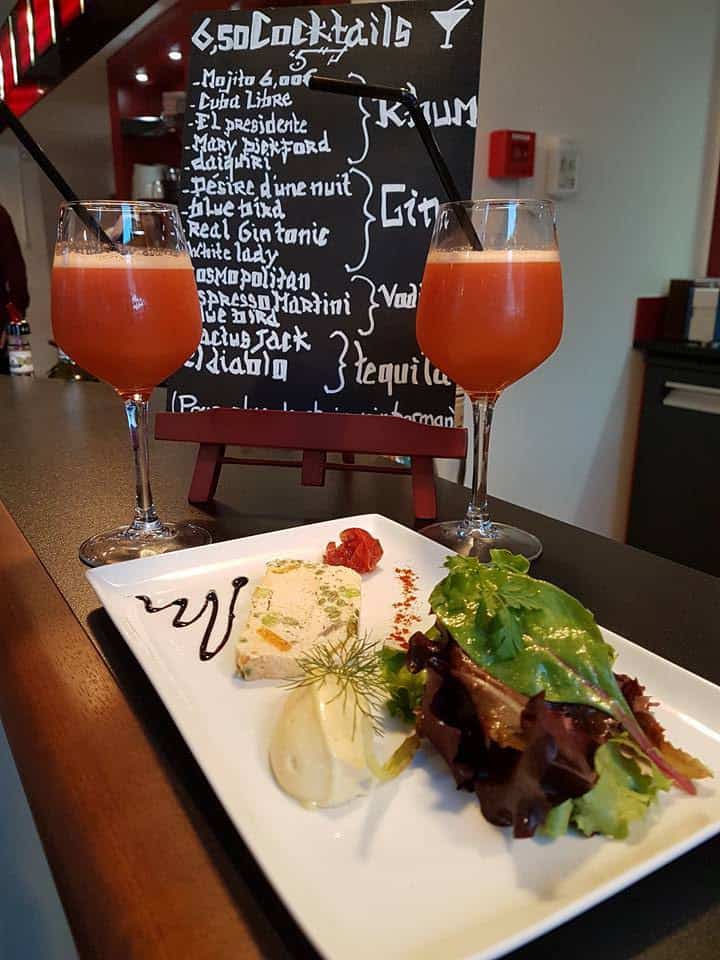 6,50 Cocktails
5
-Mojito 6,00€
-Cuba Libre
-El presidente
-Mary pickford
daiquiri
Rhum
-Désire d'une nuit
-blue bird
Real Gin tonic
White lady
Gin
osmopolitan
spresso Martini
lue bird
Vod
acius Jack
el diablo
tequila